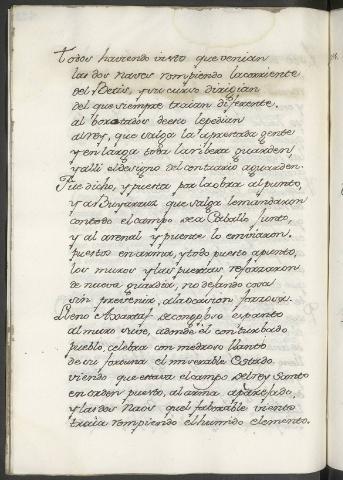 Todos haviendo visto que venian
las dos naves rompiendo la corriente
del Betis, y su curso dirigian
del que siempre traian diferente.
al alborotados deesto le pedian
al rey, que salga la aprestada gente
y en larga toda la ribera guarden,
y alli el designo del contrario aguarden.
Fue dicho, y puesto por la obra al punto,
y a Buyaraux que salga le mandaron
con todo el campo de a Caballo junto,
y al arenal y puente lo enviaron.
puestos en arma, y todo puesto a punto,
los muros y las puertas reforzaron
de nueva guardia, no dejando cosa
sin prevenir, a la ocasion forzosa.
Lleno Axartaf de congojoso espanto
al muro sube, adonde el conturbado
pueblo, celebra con medroso llanto
de su fortuna el miserable Estado.
viendo que estava el campo del rey Santo
en orden puesto, al arma aparejado,
y las dos Naos quel faborable viento
traia rompiendo el humido elemento.